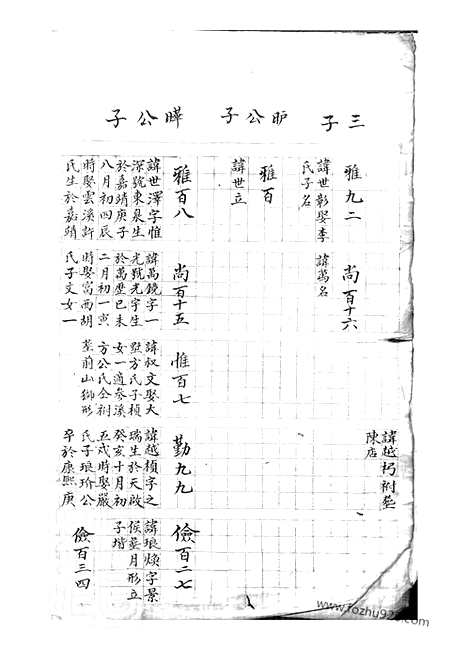 三子
雅九二
諱世彰娶李
氏子名
尚百十六
諱萬名
諱越朽祔塟
陳店
昈公子
雅百
諱世立
曄公子
雅百八
諱世澤字惟
深號東泉生
於嘉靖庚子
八月初四辰
時娶雲溪許
氏生於嘉靖
尚百十五
諱萬鏡字一
光號光宇生
於萬歷己未
二月初一寅
時娶富西胡
氏子文女一
惟百七
諱叔文娶大
墅方氏子楨
女一適參溪
方公氏仝祔
塟前山獅形
勤九九
諱越楨字之
瑞生於天啟
癸亥十月初
五戌時娶嚴
氏子琅玠公
卒於康熙庚
儉百二七
諱琅煥字景
侯塟月形立
子堦
儉百三四
www.fozhu920.com